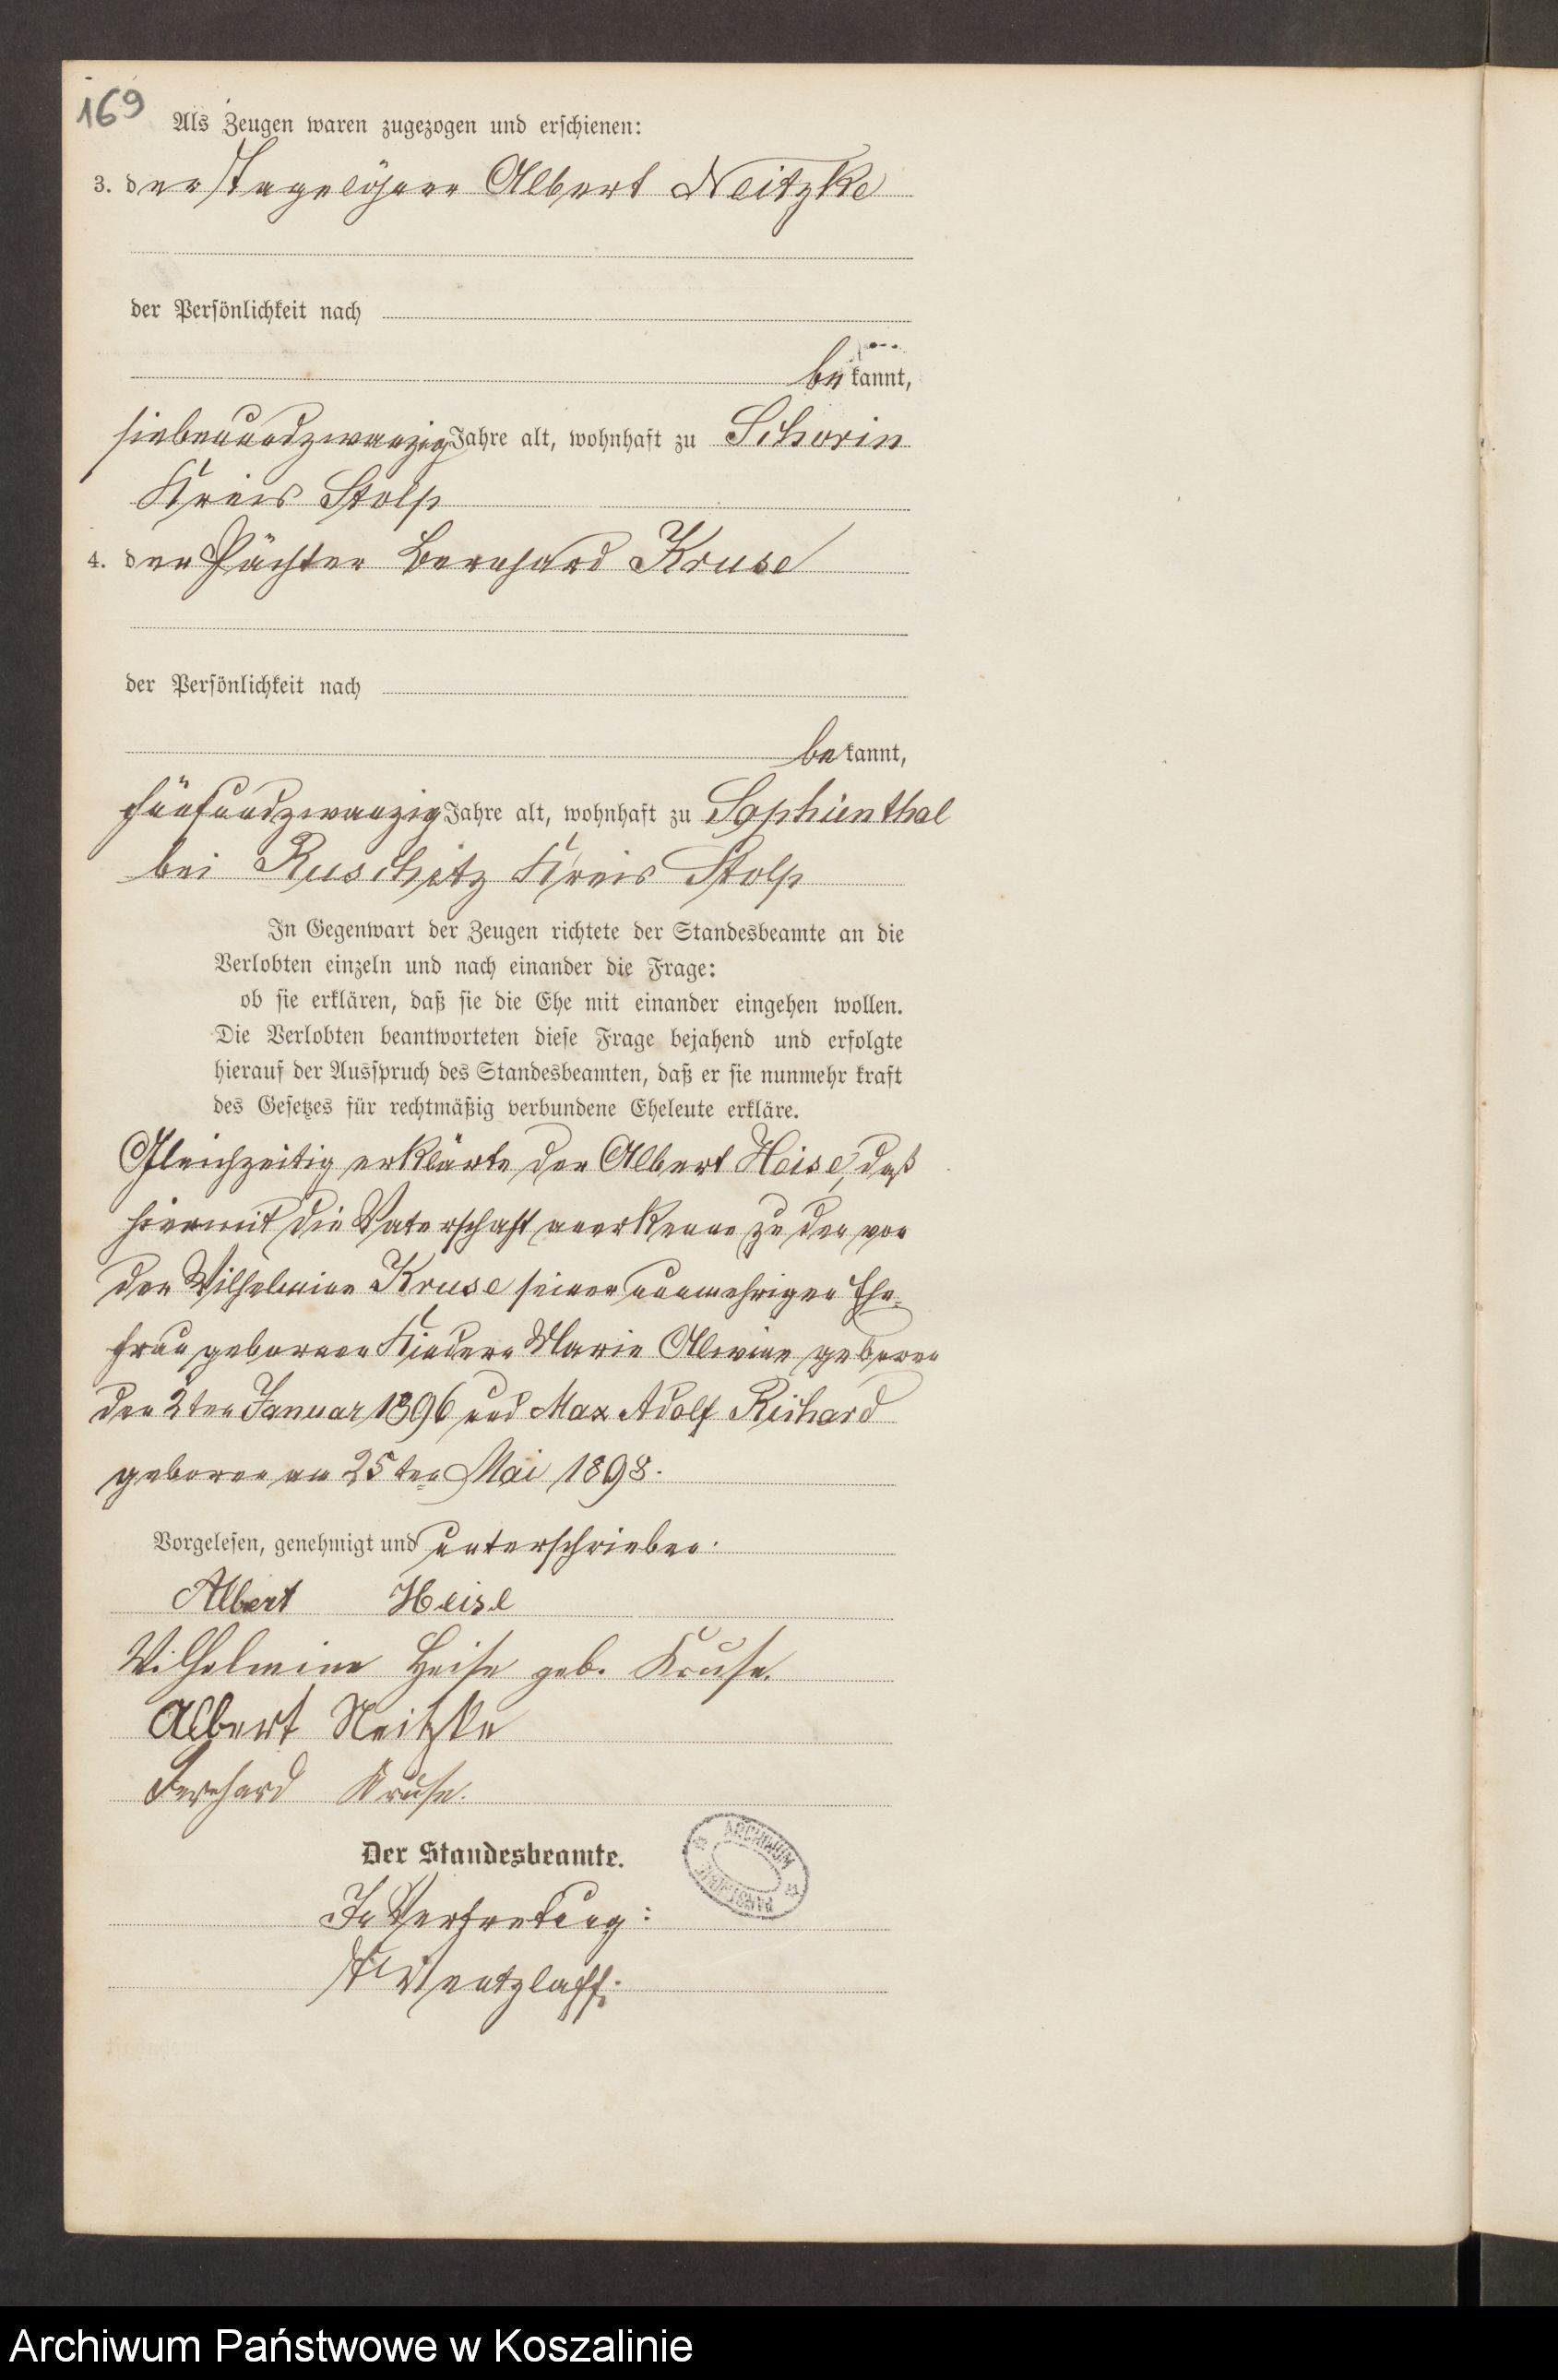 169
Als Zeugen waren zugezogen und erschienen:
3. der Tagelöhner Albert Neitzke
der Persönlichkeit nach
bekannt,
siebenundzwanzig Jahre alt, wohnhaft zu Schorin
Kreis Stolp
4. der Pächter Bernhard Kruse
der Persönlichkeit nach
bekannt,
fünfundzwanzig Jahre alt, wohnhaft zu Sophienthal
bei Ruschitz Kreis Stolp
In Gegenwart der Zeugen richtete der Standesbeamte an die
Verlobten einzeln und nach einander die Frage:
ob sie erklären, daß sie die Ehe mit einander eingehen wollen.
Die Verlobten beantworteten diese Frage bejahend und erfolgte
hierauf der Ausspruch des Standesbeamten, daß er sie nunmehr kraft
des Gesetzes für rechtmäßig verbundene Eheleute erkläre.
Gleichzeitig erklärte der Albert Heise, daß
hiermit die Vaterschaft anerkenne zu den von
der Wilhelmine Kruse seiner nunmehrigen Ehe-
frau geborenen Kindern Marie Alwine geboren
den 2ten Januar 1896 und Max Adolf Richard
geboren am 25ten Mai 1898.
Vorgelesen, genehmigt und unterschrieben.
Albert Heise
Wilhelmine Heise geb. Kruse.
Albert Neitzke
Bernhard Kruse.
Der Standesbeamte.
In Vertretung:
Wentzlaff.
ARCHIWUM
Archiwum Państwowe w Koszalinie